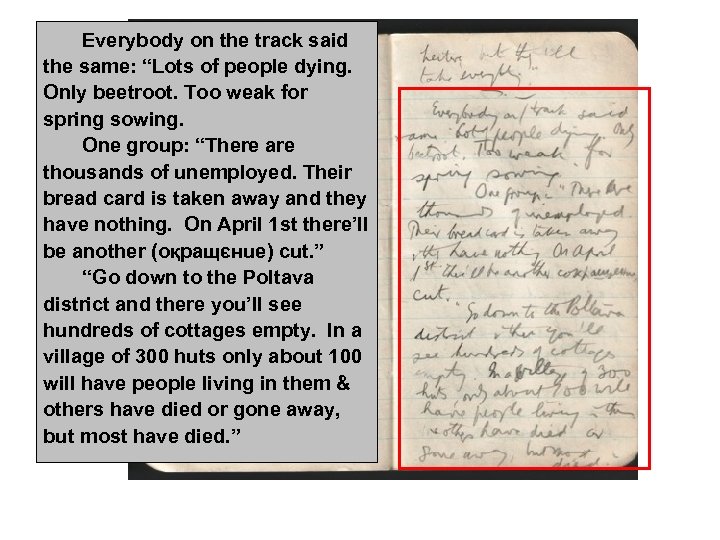 Everybody on the track said
the same: “Lots of people dying.
Only beetroot. Too weak for
spring sowing.
One group: “There are
thousands of unemployed. Their
bread card is taken away and they
have nothing. On April 1st there’ll
be another (оқращєние) cut.”
“Go down to the Poltava
district and there you’ll see
hundreds of cottages empty. In a
village of 300 huts only about 100
will have people living in them &
others have died or gone away,
but most have died.”
but they'll
take everything."
Everybody on track said
same: Lots people dying. Only
beetroot. Too weak for
spring sowing.
One group: "There are
thousands of unemployed.
Their bread card is taken away
, they have nothing. On April
1st there'll be another
cut."
"Go down to the Poltava
district & there you'll
see hundreds of cottages
empty. In a village of 300
huts, only about 100 will
have people living in them
& others have died or
gone away, but most
died."